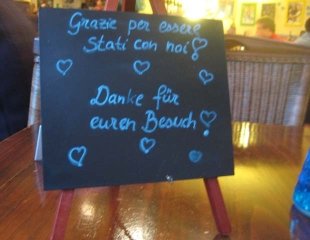 Grazie per essere
Stati con noi!
Danke für
euren Besuch!